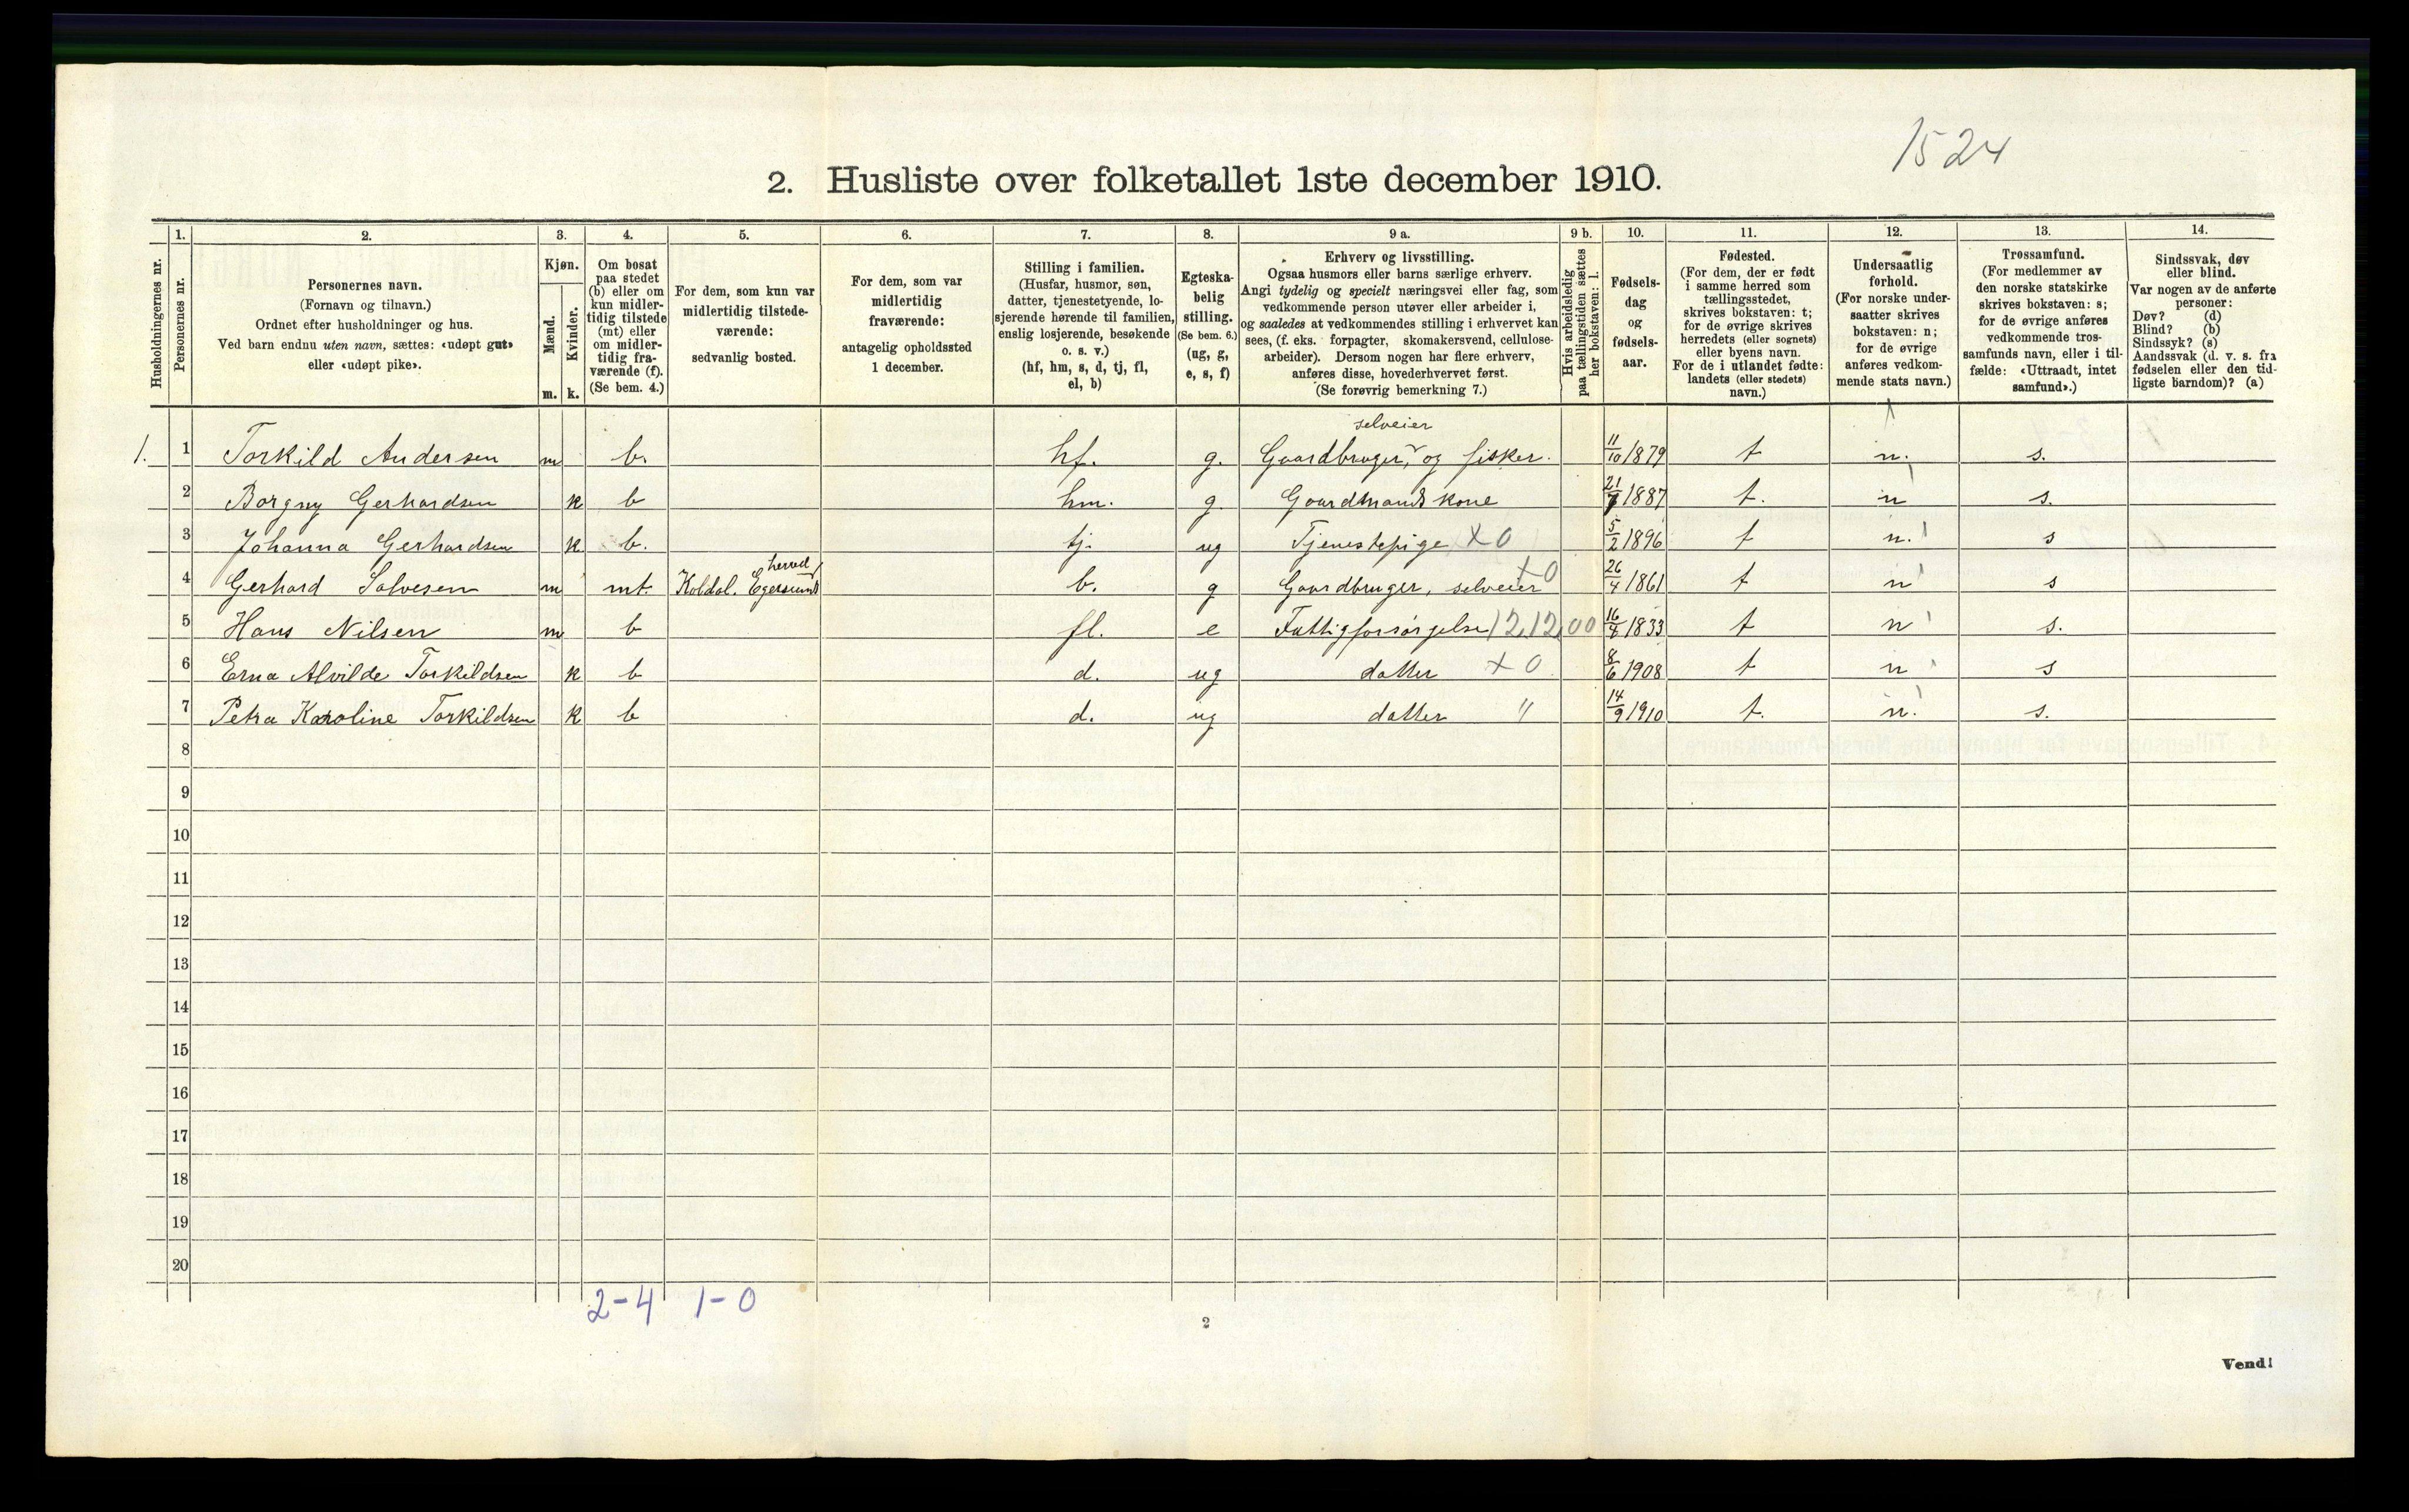 1524
2. Husliste over folketallet 1ste december 1910.
Husholdningernes nr.
1. Personernes nr.
2. Personernes navn.
(Fornavn og tilnavn.)
Ordnet efter husholdninger og hus.
Ved barn endnu uten navn, sættes: «udøpt gut»
eller «udøpt pike».
3. Kjøn.
Mænd. m.
Kvinder. k.
4. Om bosat
paa stedet
(b) eller om
kun midler-
tidig tilstede
(mt) eller
om midler-
tidig fra-
værende (f).
(Se bem. 4.)
5. For dem, som kun var
midlertidig tilstede-
værende:
sedvanlig bosted.
6. For dem, som var
midlertidig
fraværende:
antagelig opholdssted
1 december.
7. Stilling i familien.
(Husfar, husmor, søn,
datter, tjenestetyende, lo-
sjerende hørende til familien,
enslig losjerende, besøkende
o. s. v.)
(hf, hm, s, d, tj, fl,
el, b)
8. Egteska-
belig
stilling.
(Se bem. 6.)
(ug, g,
e, s, f)
9 a. Erhverv og livsstilling.
Ogsaa husmors eller barns særlige erhverv.
Angi tydelig og specielt næringsvei eller fag, som
vedkommende person utøver eller arbeider i,
og saaledes at vedkommendes stilling i erhvervet kan
sees, (f. eks. forpagter, skomakersvend, cellulose-
arbeider). Dersom nogen har flere erhverv,
anføres disse, hovederhvervet først.
(Se forøvrig bemerkning 7.)
9 b. Hvis arbeidsledig
paa tællingstiden sættes
her bokstaven: l.
10. Fødsels-
dag
og
fødsels-
aar.
11. Fødested.
(For dem, der er født
i samme herred som
tællingsstedet,
skrives bokstaven: t;
for de øvrige skrives
herredets (eller sognets)
eller byens navn.
For de i utlandet fødte:
landets (eller stedets)
navn.)
12. Undersaatlig
forhold.
(For norske under-
saatter skrives
bokstaven: n;
for de øvrige
anføres vedkom-
mende stats navn.)
13. Trossamfund.
(For medlemmer av
den norske statskirke
skrives bokstaven: s;
for de øvrige anføres
vedkommende tros-
samfunds navn, eller i til-
fælde: «Uttraadt, intet
samfund».)
14. Sindssvak, døv
eller blind.
Var nogen av de anførte
personer:
Døv? (d)
Blind? (b)
Sindssyk? (s)
Aandssvak (d. v. s. fra
fødselen eller den tid-
ligste barndom)? (a)
selveier
1. 1 Torkild Andersen m b. hf. g. Gaardbruger, og fisker. 11/10 1879 t n. s.
2 Borgny Gerhardsen k b hm. g. Gaardmands kone 21/7 1887 t. n s.
3 Johanna Gerhardsen k b. tj. ug Tjenestepige x0 5/2 1896 t n. s
herred
4 Gerhard Salvesen m mt. Koldal. Egersund b. g Gaardbruger, selveier x0 26/4 1861 t n s
5 Hans Nilsen m b fl. e Fattigforsørgelse 12,12,00 16/8 1833 t n s.
6 Erna Alvilde Torkildsen k b d. ug datter x0 8/6 1908 t n s
7 Petra Karoline Torkildsen k b d. ug datter " 14/9 1910 t. n. s.
8
9
10
11
12
13
14
15
16
17
18
19
20
2-4 1-0
2
Vend!